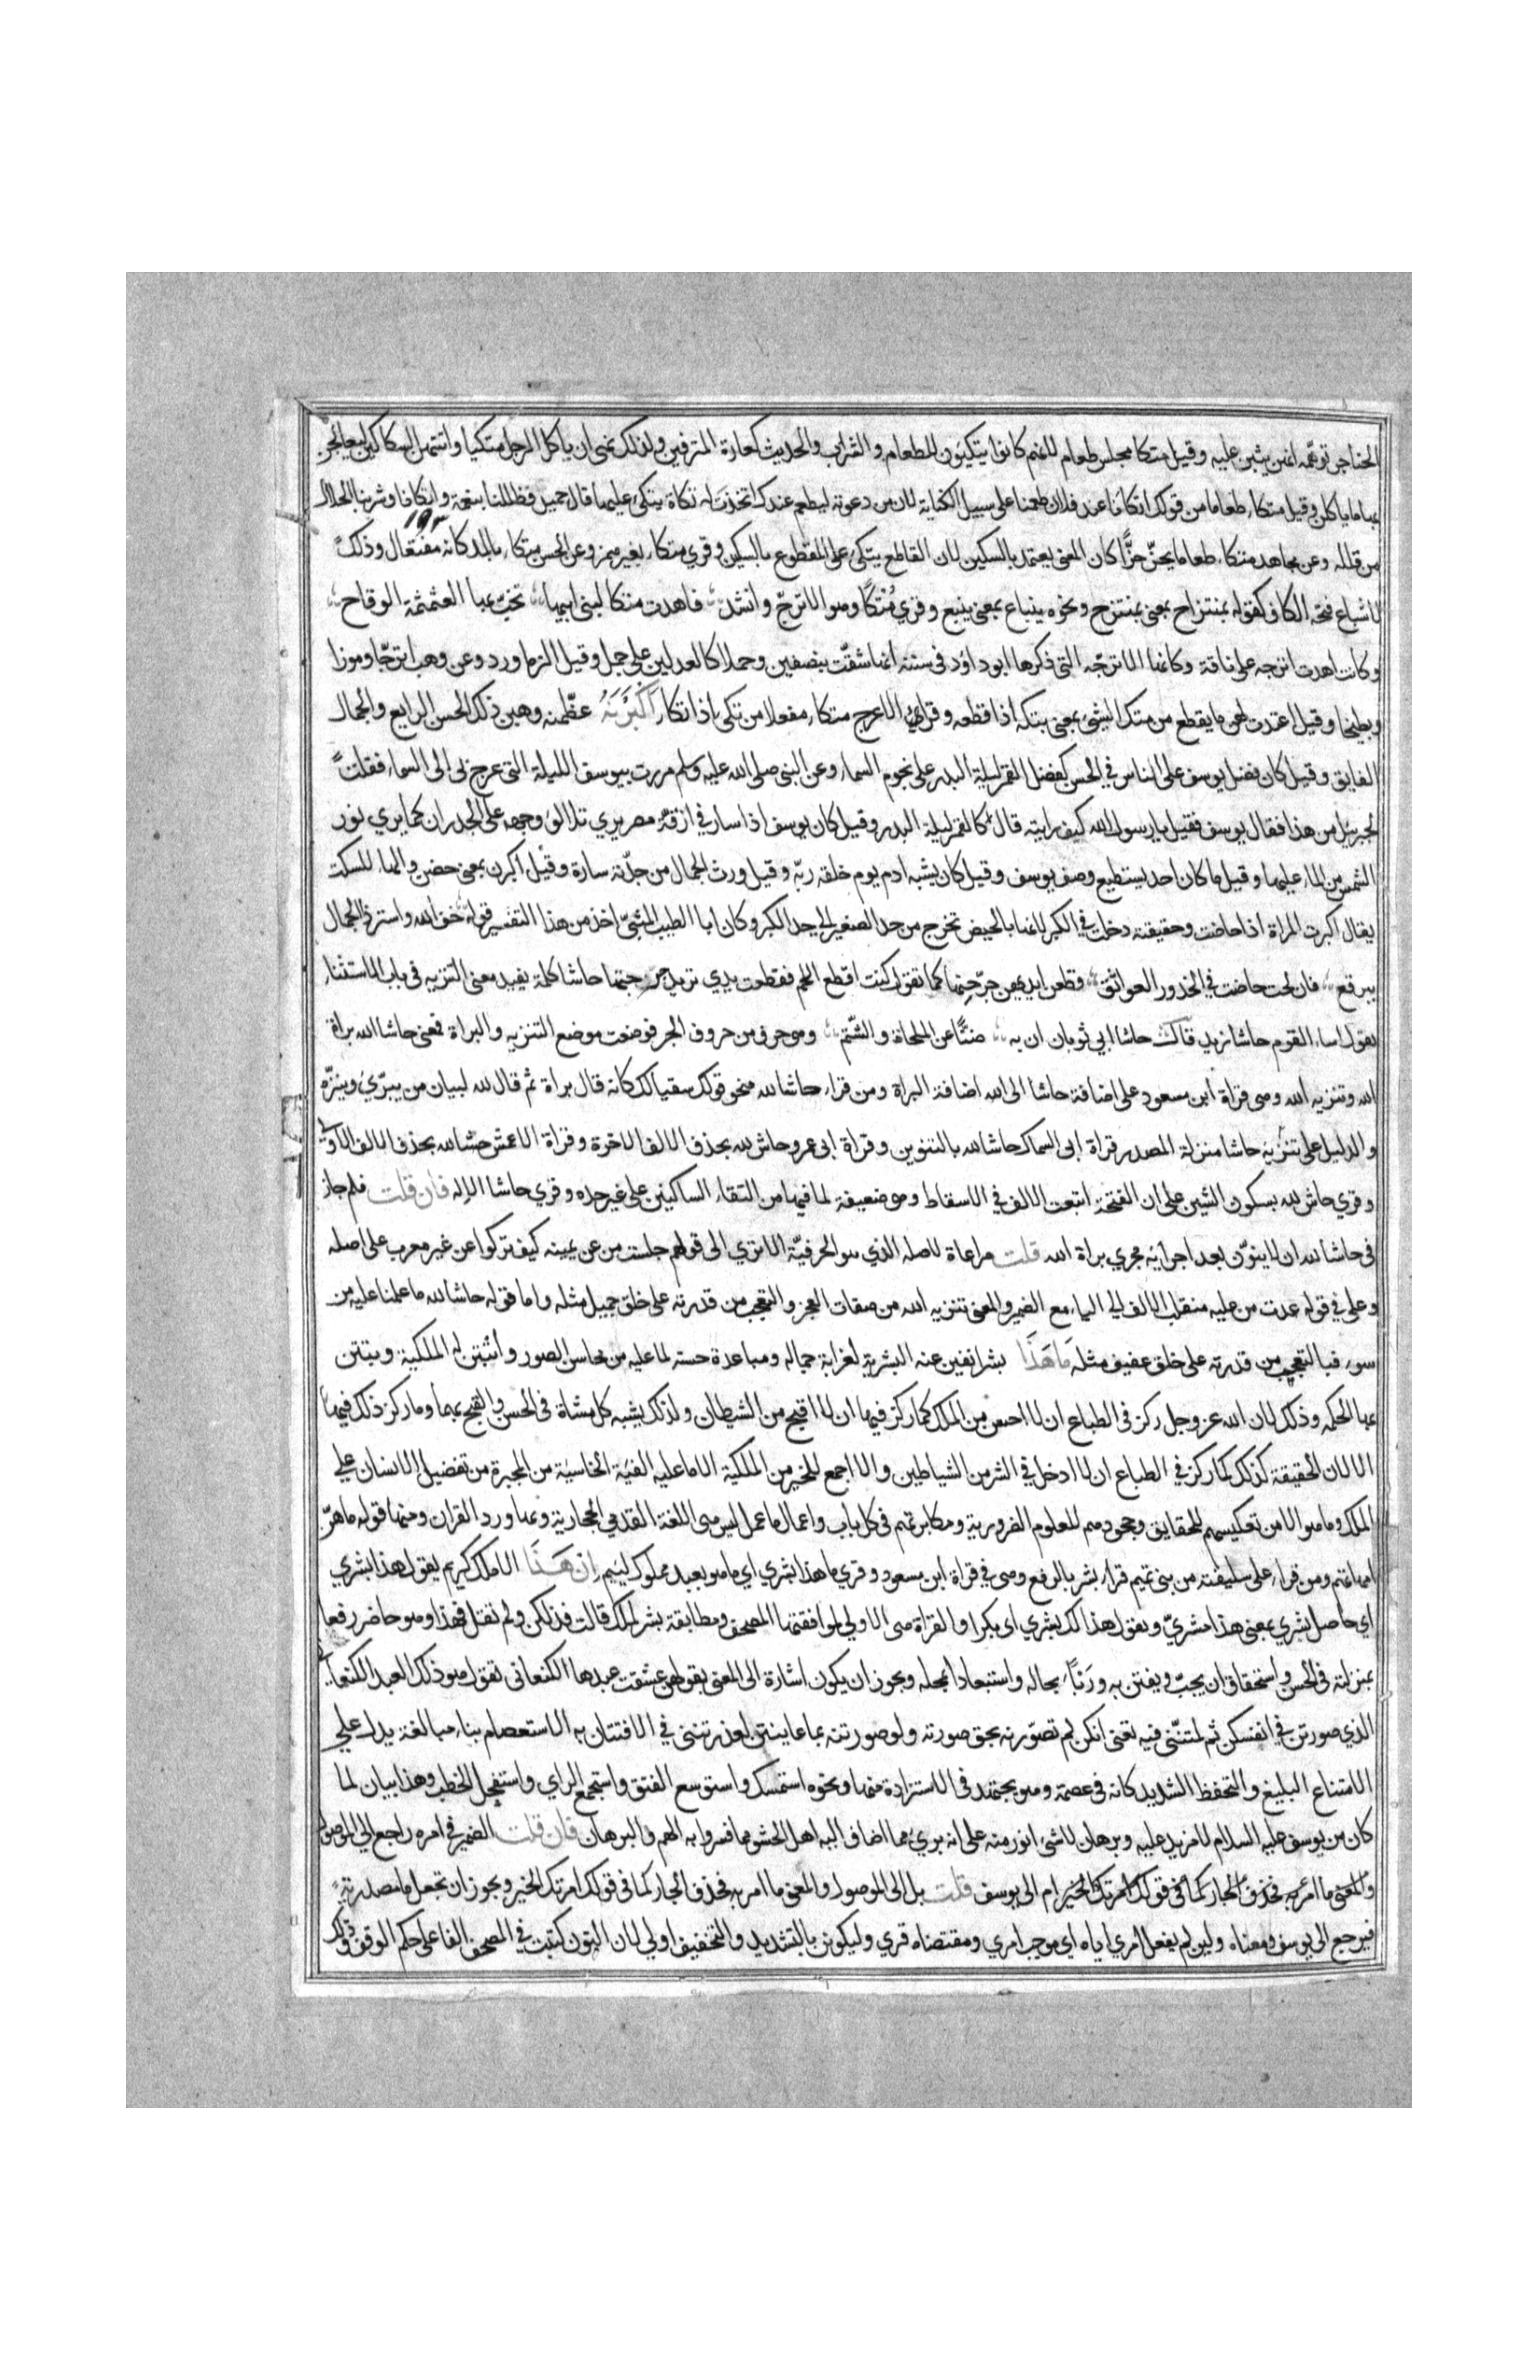 الخناجر توهمه انهن يثبن عليه وقيل متكا مجلس طعام لانهم كانوا يتكيون للطعام والشراب والحديث كعادة المترفين ولذلك نهى ان ياكل الرجل متكيا واتتهن السكاكين ليعالجن
بها ما ياكلن وقيل متكاء طعاما من قولك اتكانا عند فلان طعمنا على سبيل الكناية لان من دعوته ليطعم عندك اتخذت له تكاة يتكئ عليها قال جميل فظللنا بنعمة واتكانا وشربنا الحلال
١٩٣
من قلله وعن مجاهد متكاء طعاما يحز حزًّا كان المعنى يعتمد بالسكين لان القاطع يتكئ على المقطوع بالسكين وقري متكاء بغير همز وعن الحسن متكاء بالمد كانه مفتعال وذلك
لاشباع فتحه الكاف كقوله بمنتزاح بمعنى بمنتزح ونحوه ينباع بمعنى ينبع وقري مُتكًا وهو الاترجّ وانشد فاهدت متكا لبنى ابيها تخبّ بها العثمثمة الوقاح
وكانت اهدت اترجه على ناقة وكانها الاترجّه التى ذكرها ابو داؤد فى سننه انها شقّت بنصفين وحملا كالعدلين على جمل وقيل الزماورد وعن وهب اترجّا وموزا
وبطيخا وقيل اعتدت لهن ما يقطع من متك الشئ بمعنى بتكه اذا قطعه وقرا الاعرج متكاء مفعلا من تكى اذا اتكا أَكْبَرْنَهُ عظّمنه وهبن ذلك الحسن الرايع والجمال
الفايق وقيل كان فضل يوسف على الناس في الحسن كفضل القمر ليلة البدر على نجوم السماء وعن النبى صلى الله عليه وسلم مررت بيوسف الليلة التى عرج بى الى السماء فقلت
لجبريل من هذا فقال يوسف فقيل يا رسول الله كيف رايته قال كالقمر ليلة البدر وقيل كان يوسف اذا سار في ازقّة مصر يري تلالؤ وجهه على الجدران كما يري نور
الشمس من الماء عليها وقيل ما كان احد يستطيع وصف يوسف وقيل كان يشبه ادم يوم خلقه ربّه وقيل ورث الجمال من جدّته سارة وقيل اكبرن بمعنى حضن والهاء للسكت
يقال اكبرت المراة اذا حاضت وحقيقته دخلت في الكبر لانها بالحيض تخرج من حد الصغر الى حد الكبر وكان ابا الطيب المتنبّي اخذ من هذا التفسير قوله خف الله واستر ذا الجمال
ببرقع فان لحت حاضت في الخدور العواتق وقطعن ايديهن جرّحنها كما تقول كنت اقطع اللحم فقطعت يدي تريد جرحتها حاشا كلمة يفيد معنى التنزيه فى باب الاستثناء
يقول اساء القوم حاشا زيد قال حاشا ابي ثوبان ان به ضنًّا عن الملحاة والشّتم وهو حرف من حروف الجر فوضعت موضع التنزيه والبراة فمعنى حاشا الله براة
الله وتنزيه الله وهى قراة ابن مسعود على اضافة حاشا الى الله اضافة البراة ومن قراء حاشا لله فنحو قولك سقيا لك كانه قال براة ثم قال لله لبيان من يبرّئ وينزّه
والدليل على تنزيه حاشا منزلة المصدر قراة ابى السماك حاشا لله بالتنوين وقراة ابى عمرو حاش لله بحذف الالف الاخرة وقراة الاعمش حشا لله بحذف الالف الاولى
وقري حاش لله بسكون الشين على ان الفتحة اتبعت الالف في الاسقاط وهو ضعيفة لما فيها من التقاء الساكنين على غير حده وقري حاشا الاله فان قلت فلم جاز
فى حاشا لله ان لا ينوّن بعد اجرايه مجري براة الله قلت مراعاة لاصله الذي هو الحرفيّة الا تري الى قولهم جلست من عن يمينه كيف تركوا عن غير معرب على اصله
وعلى في قوله عدت من عليه منقلب الالف الى الياء مع الضمير والمعنى تنزيه الله من صفات العجز والتعجب من قدرته على خلق جميل مثله واما قوله حاشا لله ما علمنا عليه من
سوء فبالتعجب من قدرته على خلق عفيف مثله مَا هَذَا بشرا نفين عنه البشرية لغرابة جماله ومباعدة حسنه لما عليه من محاسن الصور واثبتن له الملكية وبتتن
بها الحكم وذلك لان الله عز وجل ركز فى الطباع ان لا احسن من الملك كما ركز فيها ان لا اقبح من الشيطان ولذلك يشبه كل متناة فى الحسن والقبح بهما وما ركز ذلك فيها
الا لان الحقيقة كذلك كما ركز في الطباع ان لا ادخل في الشر من الشياطين ولا اجمع للخير من الملكية الا ما عليه الفئة الخاسية من المجبرة من تفضيل الانسان على
الملك وما هو الا من تعكيسهم للحقايق وجحودهم للعلوم الضرورية ومكابرتهم فى كل باب واعمال ما عمل ليس هى اللغة القدمي الحجازية وبها ورد القران ومنها قوله ما هنّ
امهاتهم ومن قراء على سليقته من بنى تميم قراء بشر بالرفع وهى في قراة ابن مسعود وقري ما هذا بشري اي ما هو بعبد مملوك ليئم إنْ هَذَا الا ملك كريم يقول هذا بشري
اي حاصل بشري بمعنى هذا مشريّ ويقول هذا لك بشري اى بكرا والقراة هى الاولي لموافقتها المصحف ومطابقة بشر لملك قالت فذلكن ولم تقل فهذا وهو حاضر رفعا
بمنزلته فى الحسن واستحقاق ان يحبّ ويفتتن به ورَبًّا بحاله واستبعادا لمحله ويجوز ان يكون اشارة الى المعنى بقولهن عشقت عبدها الكنعانى تقول هو ذلك العبد الكنعانى
الذي صورتن في انفسكن ثم لمتننّى فيه تعنى انكن لم تصوّرنه بحق صورته ولو صورتنه بما عاينتن لعذرتننى في الافتتان به الاستعصام بناء مبالغة يدل على
الامتناع البليغ والتحفظ الشديد كانه فى عصمة وهو يجتهد فى الاستزادة منها ونحوه استمسك واستوسع الفتق واستجمع الراي واستفحل الخطب وهذا بيان لما
كان من يوسف عليه السلام لا مزيد عليه وبرهان لا شئ انور منه على انه بريء مما اضاف اليه اهل الحشو مما فسروا به الهم والبرهان فان قلت الضمير في امره راجع الى الموصول
والمعنى ما امر به فحذف الجار كما فى قولك امرتك الخير ام الى يوسف قلت بل الى الموصول والمعنى ما امر به فحذف الجار كما فى قولك امرتك الخير ويجوز ان تجعل ما مصدرية
فيرجع الى يوسف ومعناه ولين لم يفعل امري اياه اى موجب امري ومقتضاه قري وليكونن بالتشديد والتخفيف اولي لان النون كتبت في المصحف الفا على حكم الوقف وذلك